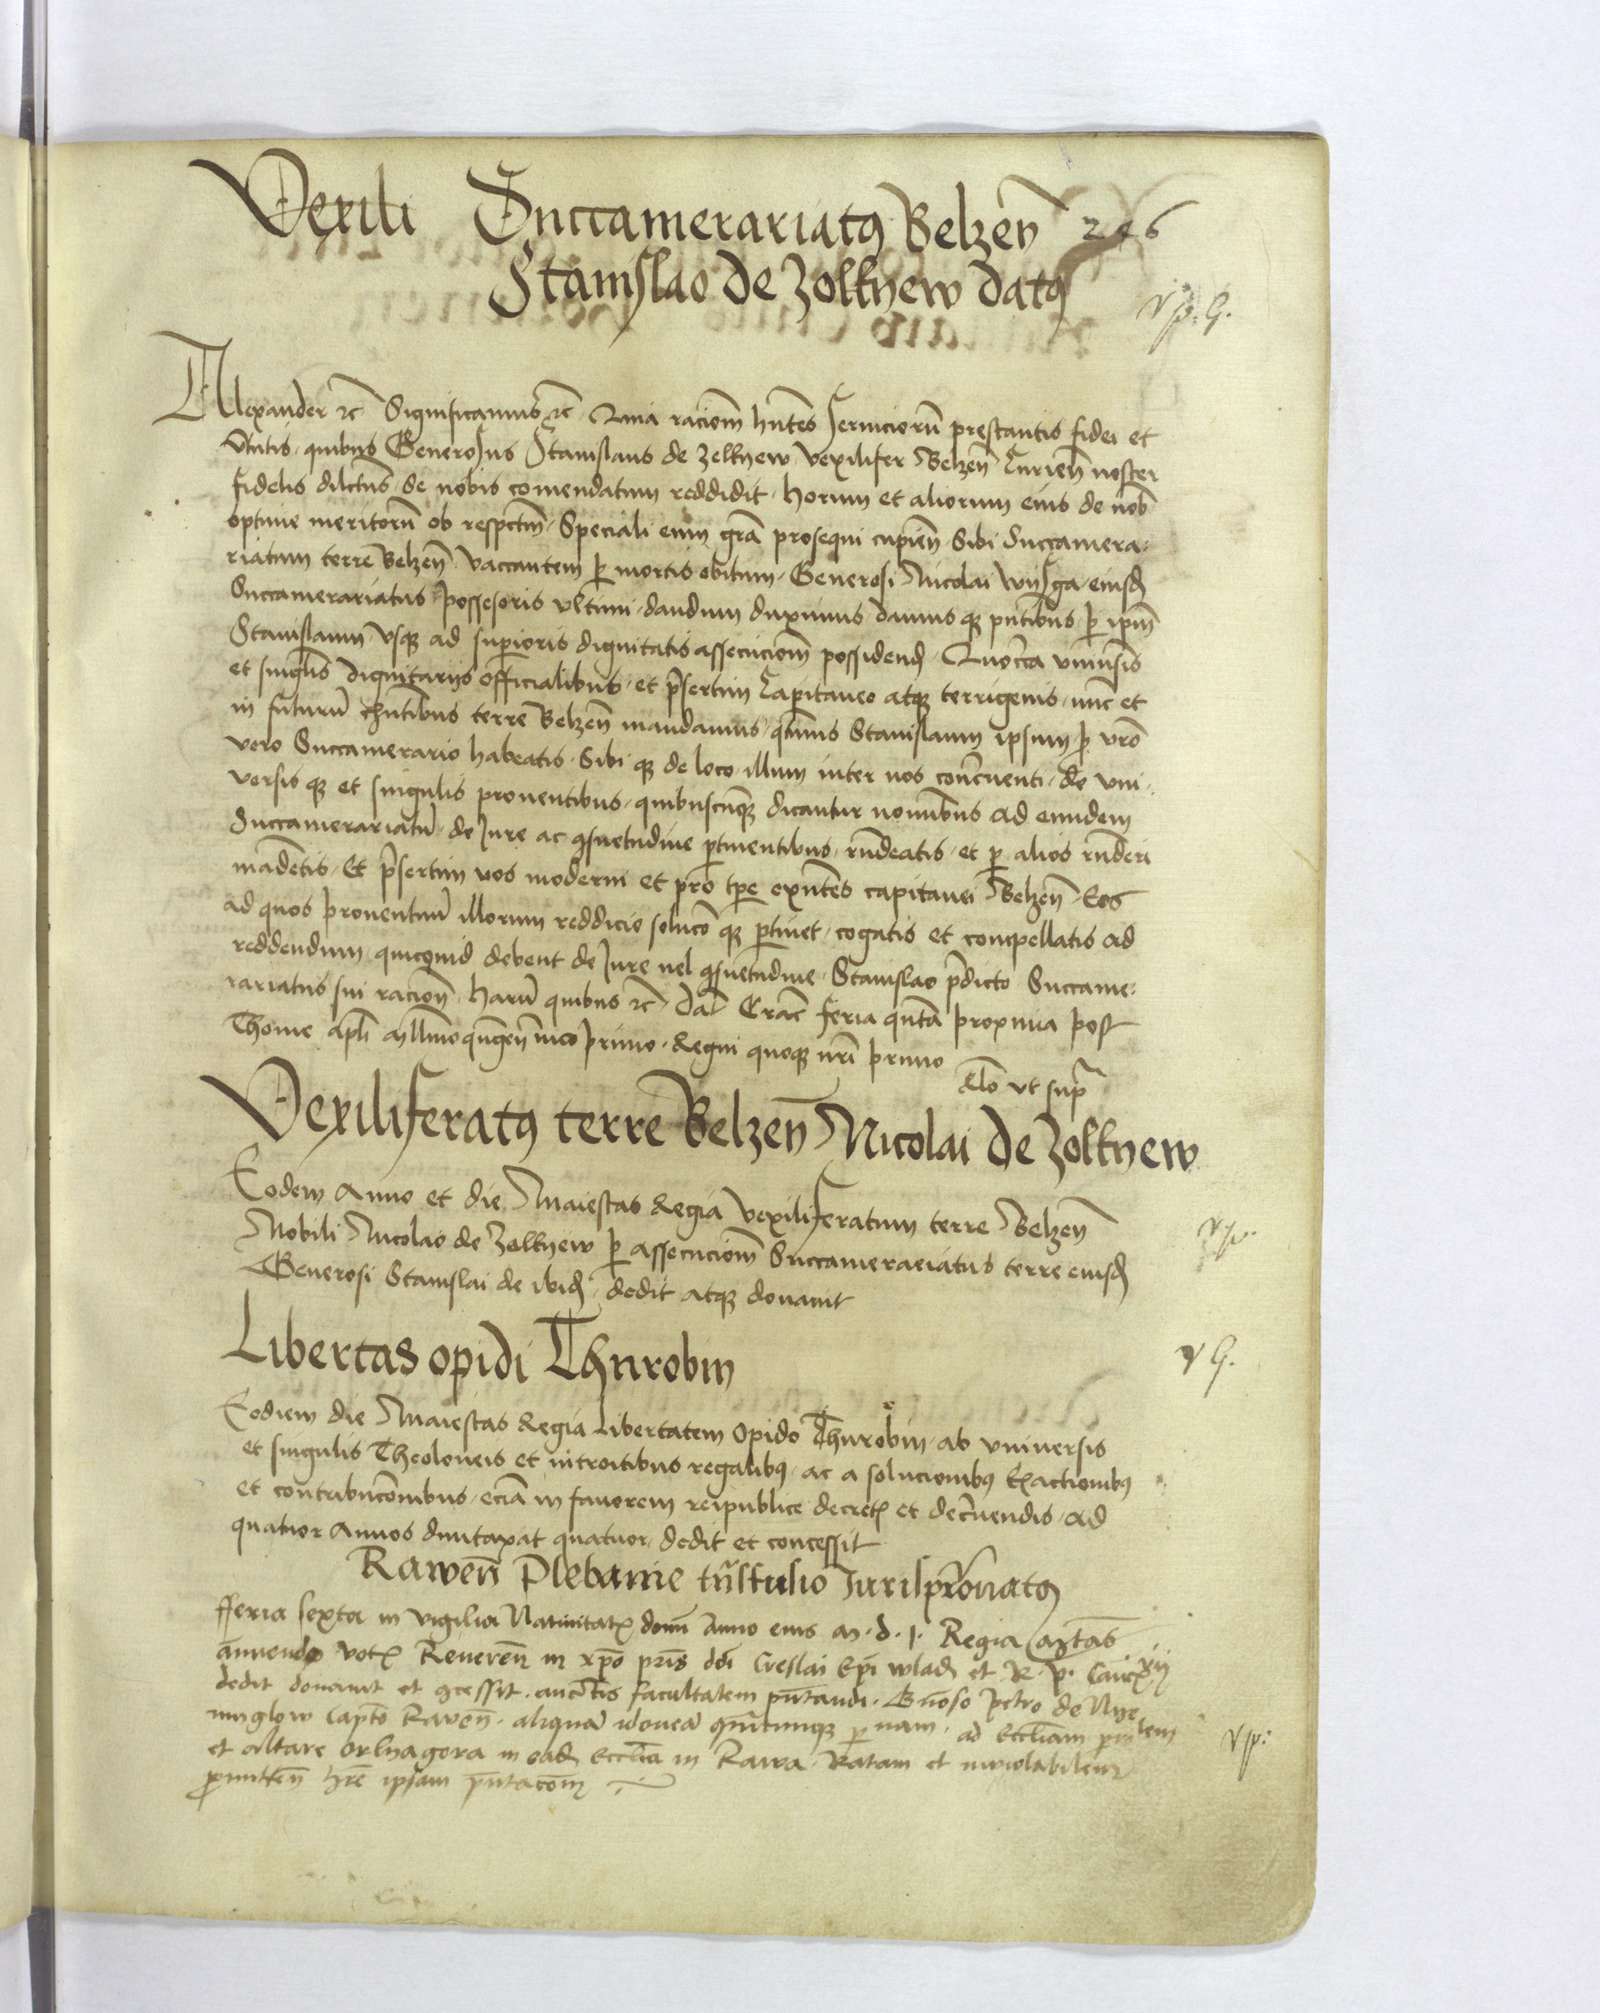 Vexili Succamerariatꝯ Belzen̄ 246
Stanislao de Zolknew datꝯ
Vp. G.
Alexander ⁊c Significamus ⁊c Quia racionem hn̄tes serviciorū prestantis fidei et
v̄tutis quibus Generosus Stanislaus de Zolknew Vexilifer Belzen̄ Curien̄ noster
fidelis dilctus se nobis comendatum reddidit horum et aliorum eius de nob̄
optime meritorū ob respctm̄ Speciali eum gr̄a prosequi cupien̄ Sibi Succamera-
riatum terre Belzen̄ vaccantem p̄ mortis obitum Generosi Nicolai Wijsga eiusd̄
Succamerariatus possesoris vltimi dandum duximus damus qꝫ pn̄tibus p̄ ipm̄
Stanislaum vsqꝫ ad superioris dignitatis assecucionem possidend̄ Quocirca vniv̄sis
et singlis dignitarijs officialibus et p̄sertim Capitaneo atqꝫ terrigenis nunc et
in futurū exn̄tibus terre Belzen̄ mandamus qtm̄s Stanislaum ipsum p̄ vro
vero Succamerario habeatis Sibi qꝫ de loco illum inter nos concernenti de vni-
versis qꝫ et singulis proventibus quibuscunqꝫ dicantur nominibus ad eundem
Succamerariatū de Jure ac ꝯsuetudine pertinentibus rn̄deatis et per alios rn̄deri
mādetis Et p̄sertim vos moderni et pro tpe exn̄tes capitanei Belzen̄ Eos
ad quos proventuū illorum reddicio soluco qꝫ pertinet cogatis et conpellatis ad
reddendum quicquid debent de Jure vel ꝯsuetudine Stanislao p̄dicto Succame-
rariatus sui racion̄ harū quibus ⁊c Dat̄ Crac̄ feria qnta proxima post
Thome apli Millmoqngen̄ mo primo Regni quoqꝫ nr̄i primo
Rlo vt supra
Vexiliferatꝯ terre Belzen̄ Nicolai de Zolknew
Eodem Anno et die Maiestas Regia Vexiliferatum terre Belzen̄
Nobili Nicolao de Zolknew p̄ assecucionem Succamerariatus terre eiusd̄
Generosi Stanislai de ibid̄ dedit atqꝫ donavit
Vp.
Libertas opidi Thurobin
V G.
Eodiem die Maiestas Regia Libertatem Opido Thurobin ab vniversis
et singulis Theoloneis et introitibus regalibꝯ ac a solucionibꝯ Exactionibꝯ
et contribuconibus eciā in favorem reipublice decretꝭ et decernendis ad
quatuor Annos duntaxat quatuor dedit et concessit
Rawen̄ Plebanie tn̄sfusio Jurisprōnatꝯ
fferia sexta in vigilia Nativitatꝭ domi Anno eius M. d. 1. Regia Mtas
annuendo votꝭ Reveren̄ in xpo pris ddi Creslai Epi wlad̄ et R. P. Canc̄
dedit donavit et ꝯcessit facultatem pn̄tandi Gn̄oso Petro de Mye
mglow Capto Raven̄ aliquā idoneā ad Eccliam
et altare in ead̄ Ecclia in Rawa Ratam et inviolabilem
promitten̄ hr̄e ipsam pn̄tacom̄
Vp: